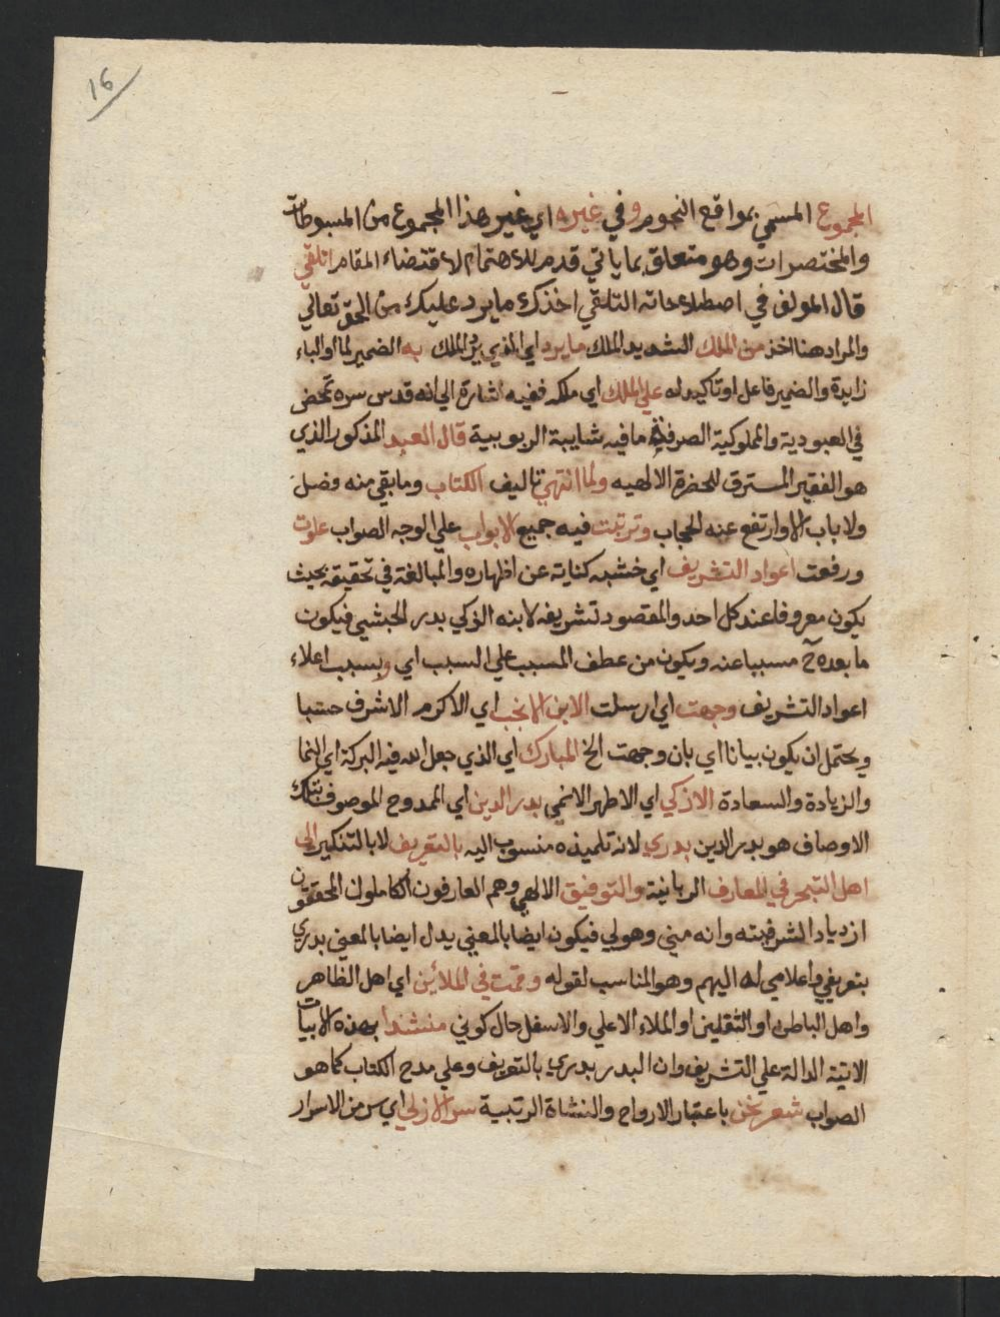 16
المجموع المسمي بمواقع النجوم وفي غيره اي غير هذا المجموع من المبسوطات
والمختصرات وهو متعلق بما ياتي قدم للاهتمام لاقتضاء المقام اتلقي
قال المولف في اصطلاحاته التلقي اخذك ما يرد عليك من الحق تعالي
والمراد هنا اخذ من الملك الشديد الملك ما يرد اي الذي يرد الملك به الضمير لما او الباء
زايدة والضمير فاعل او تاكيد له علي الملك اي ملكه ففيه اشارة الي انه قدس سره تمحض
في العبودية والمملوكية الصرفة ما فيه شايبة الربوبية قال العبد المذكور الذي
هو الفقير المسترق للحضرة الالهيه ولما انتهي تاليف الكتاب وما بقي منه وفصل
ولا باب الا وارتفع عنه الحجاب وترتبت فيه جميع الابواب علي الوجه الصواب علوت
ورفعت اعواد التشريف اي خشبه كناية عن اظهاره والمبالغة في تحقيقه بحيث
يكون معروفا عند كل احد والمقصود تشريفه لابنه الزكي بدر الحبشي فيكون
ما بعده ح مسببا عنه ويكون من عطف المسبب علي السبب اي وبسبب اعلاء
اعواد التشريف وجهت اي ارسلت الابن الانجب اي الاكرم الاشرف حسبا
ويحتمل ان يكون بيانا اي بان وجهت الخ المبارك اي الذي جعل الله فيه البركة اي النما
والزيادة والسعادة الازكي اي الاطهر الانمي بدر الدين اي الممدوح الموصوف بتلك
الاوصاف هو بدر الدين بدري لانه تلميذه منسوب اليه بالتعريف لا بالتنكير الي
اهل التبحر في المعارف الربانية والتوفيق الالهي وهم العارفون الكاملون المحققون
ازدياد الشرفيته وانه مني وهو لي فيكون ايضا بالمعني يدل ايضا بالمعني بدري
بتعريفي واعلامي له اليهم وهو المناسب لقوله وقمت في الملائين اي اهل الظاهر
واهل الباطن او الثقلين او الملاء الاعلي والاسفل حال كوني منشدا بهذه الابيات
الاتية الدالة علي التشريف وان البدر بدري بالتعريف وعلي مدح الكتاب كما هو
الصواب شعر نحن باعتبار الارواح والنشاة الرتبية سر الازلي اي سر من الاسرار